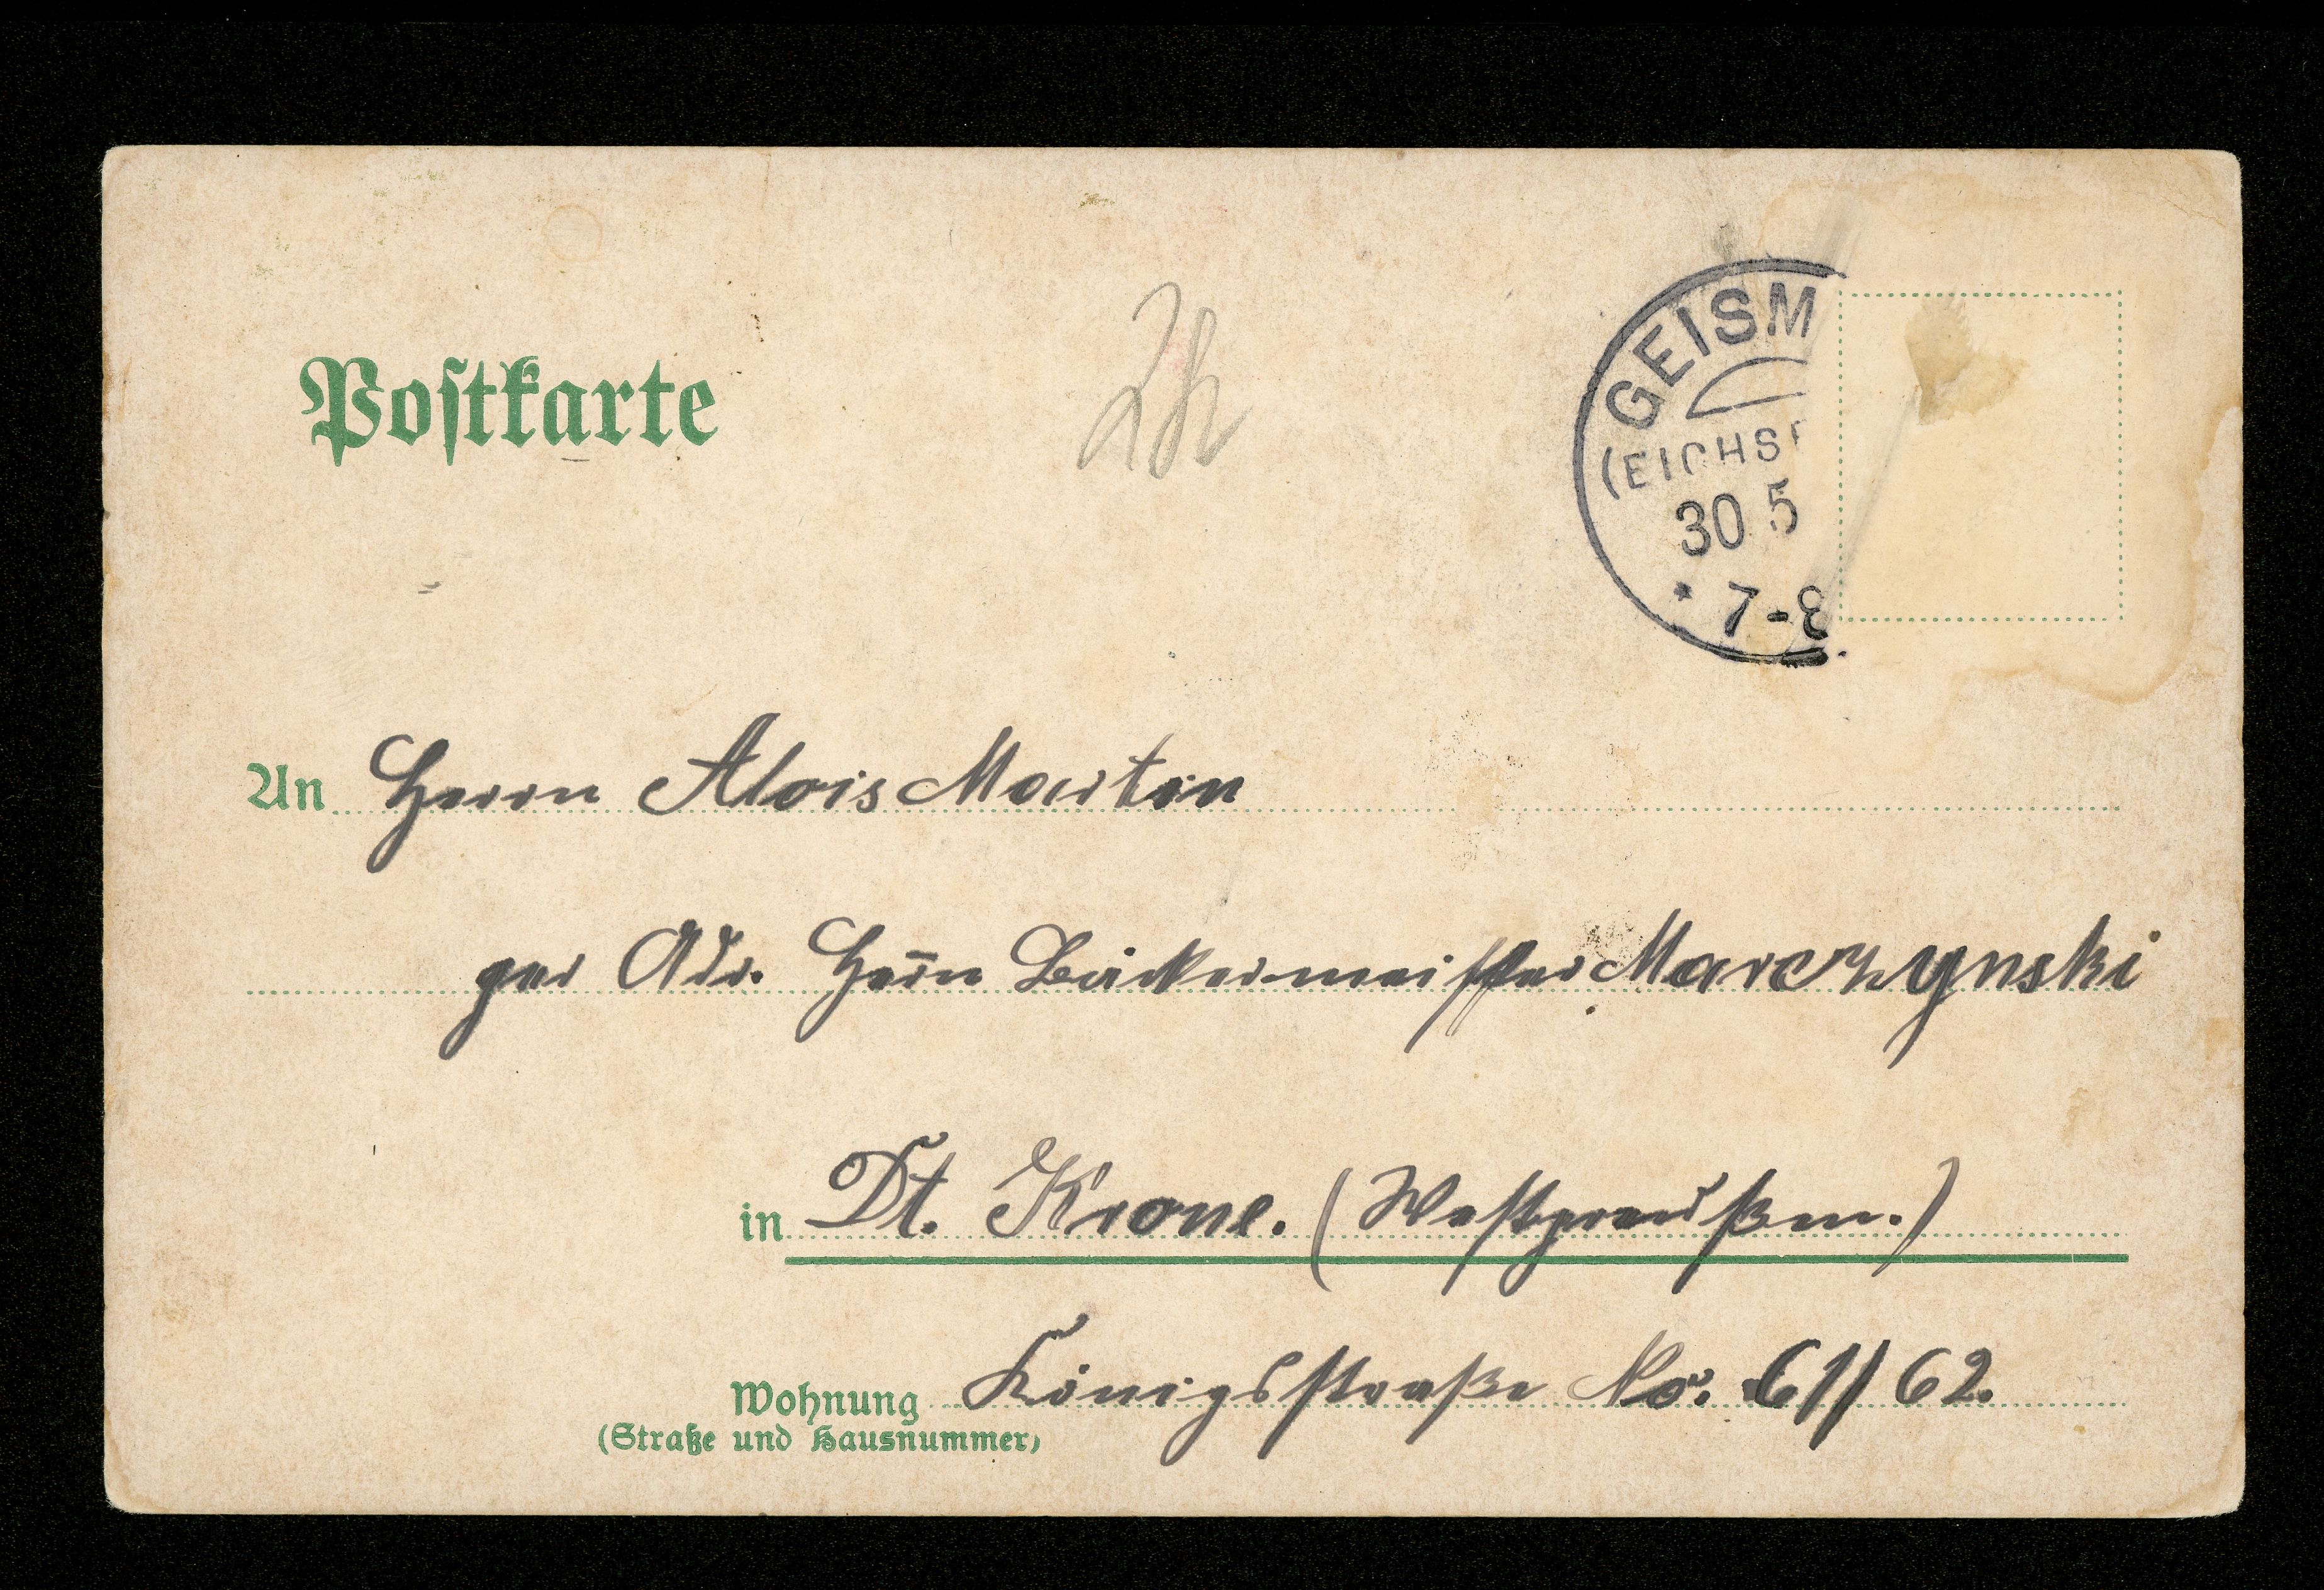 Postkarte
GEISM
(EICHSF
30 5
* 7-8
An Herrn Alois Martin
per Adr. Herrn Bäckermeister Marczynski
in Dt. Krone. (Westpreußen.)
Wohnung Königsstraße No. 61/62.
(Straße und Hausnummer)